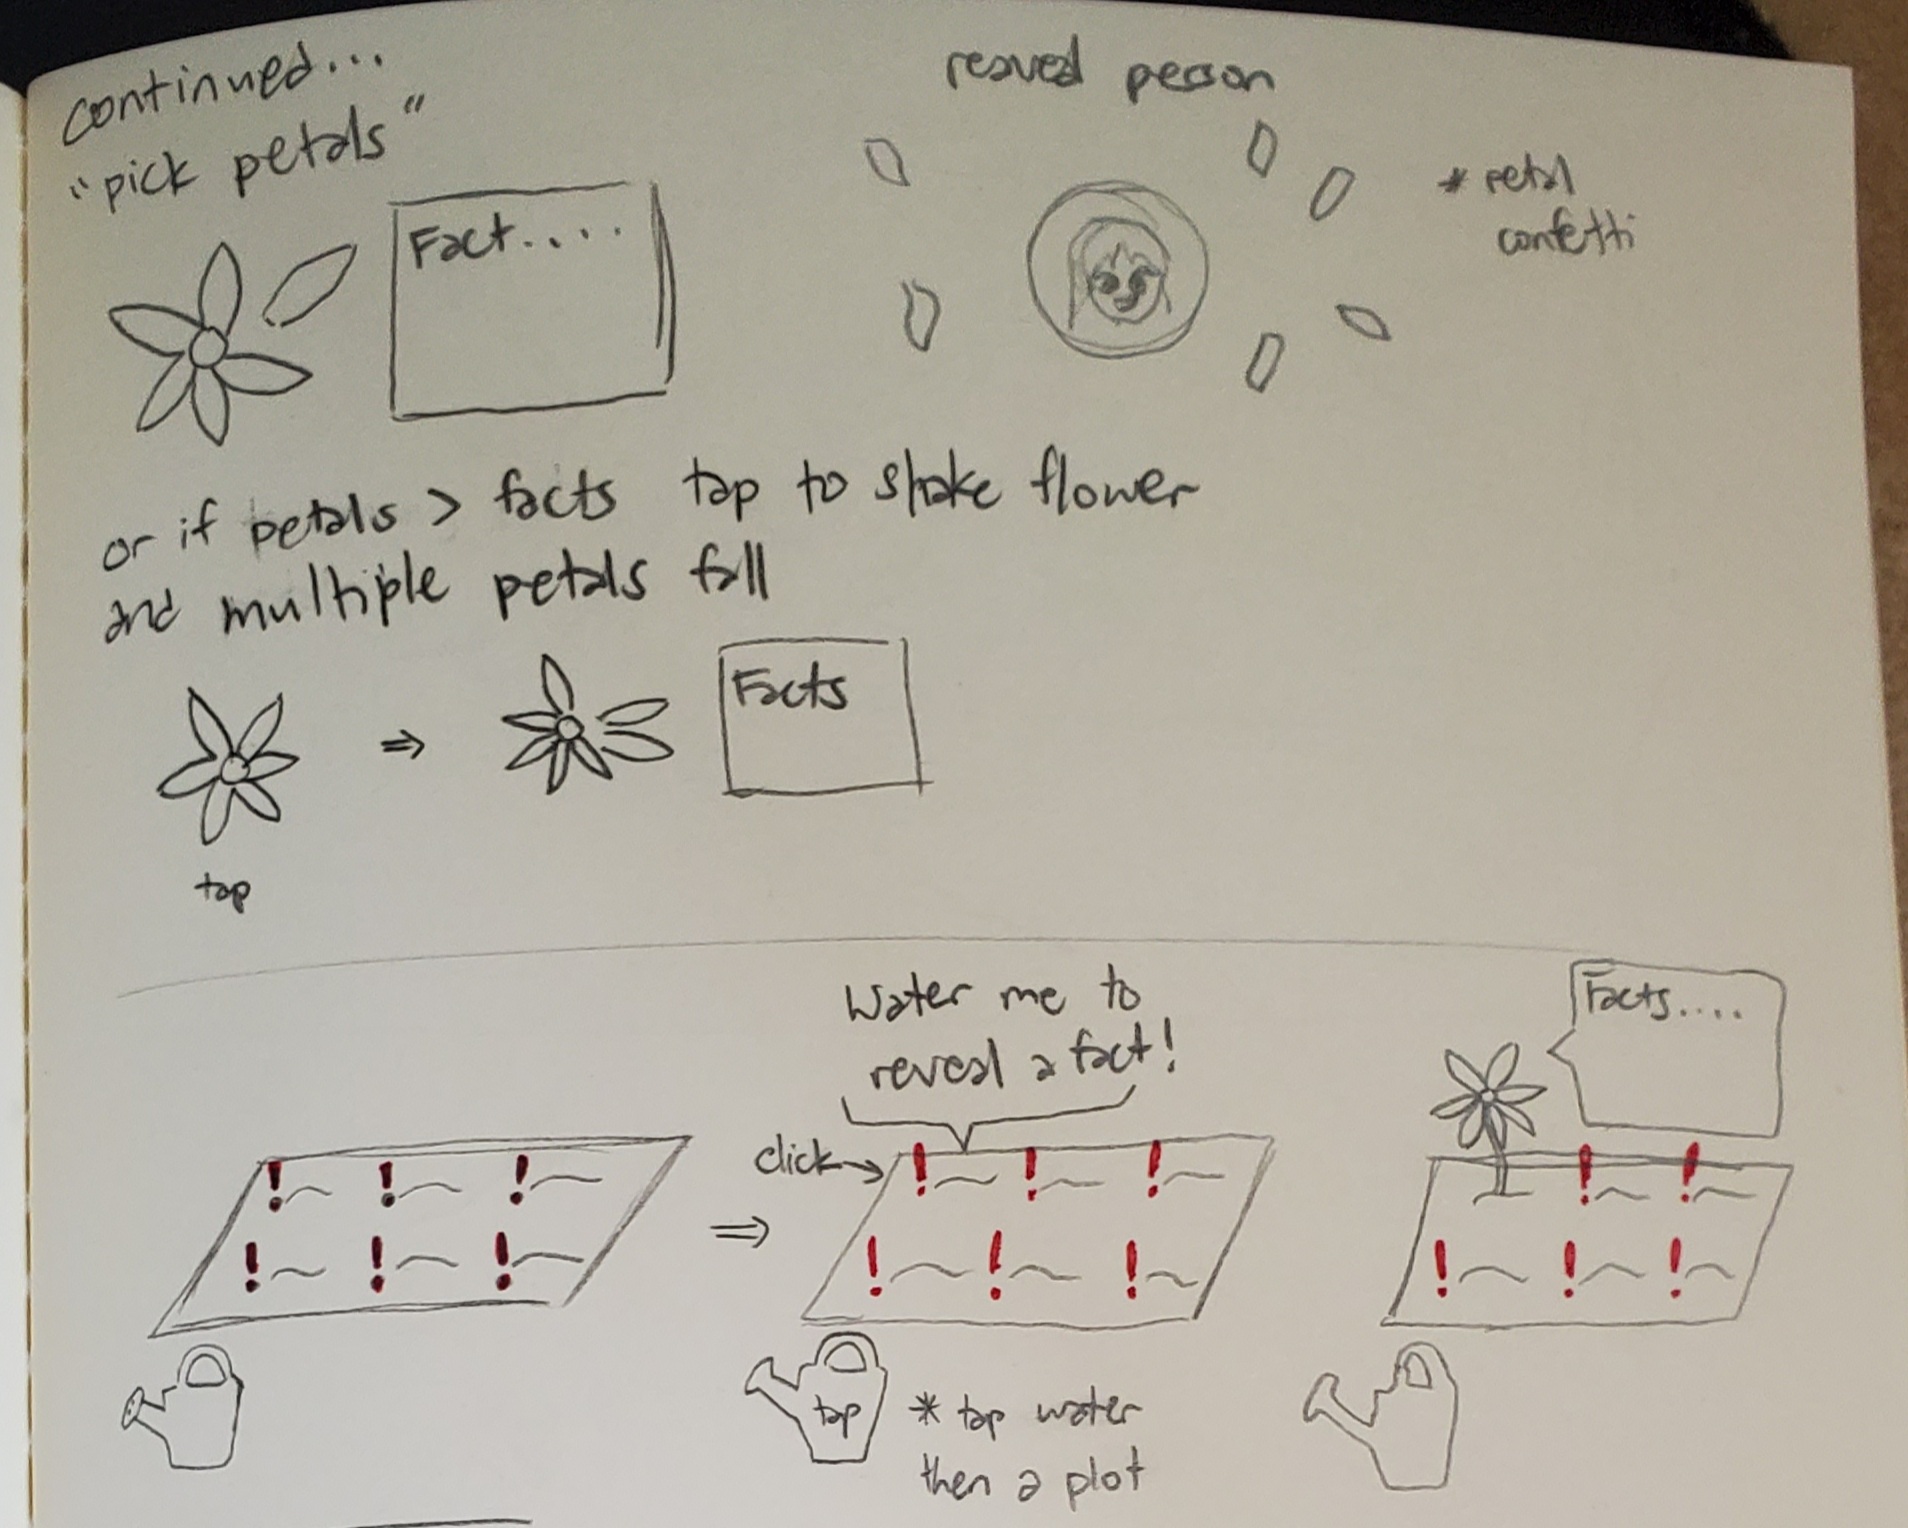 continued...
"pick petals"
Fact....
reaveal person
* petal
confetti
or if petals > facts tap to shake flower
and multiple petals fall
⇒
Facts
tap
Water me to
reveal a fact!
click→
Facts....
! ! !
! ! !
⇒
! ! !
! ! !
! !
! ! !
tap
* tap water
then a plot